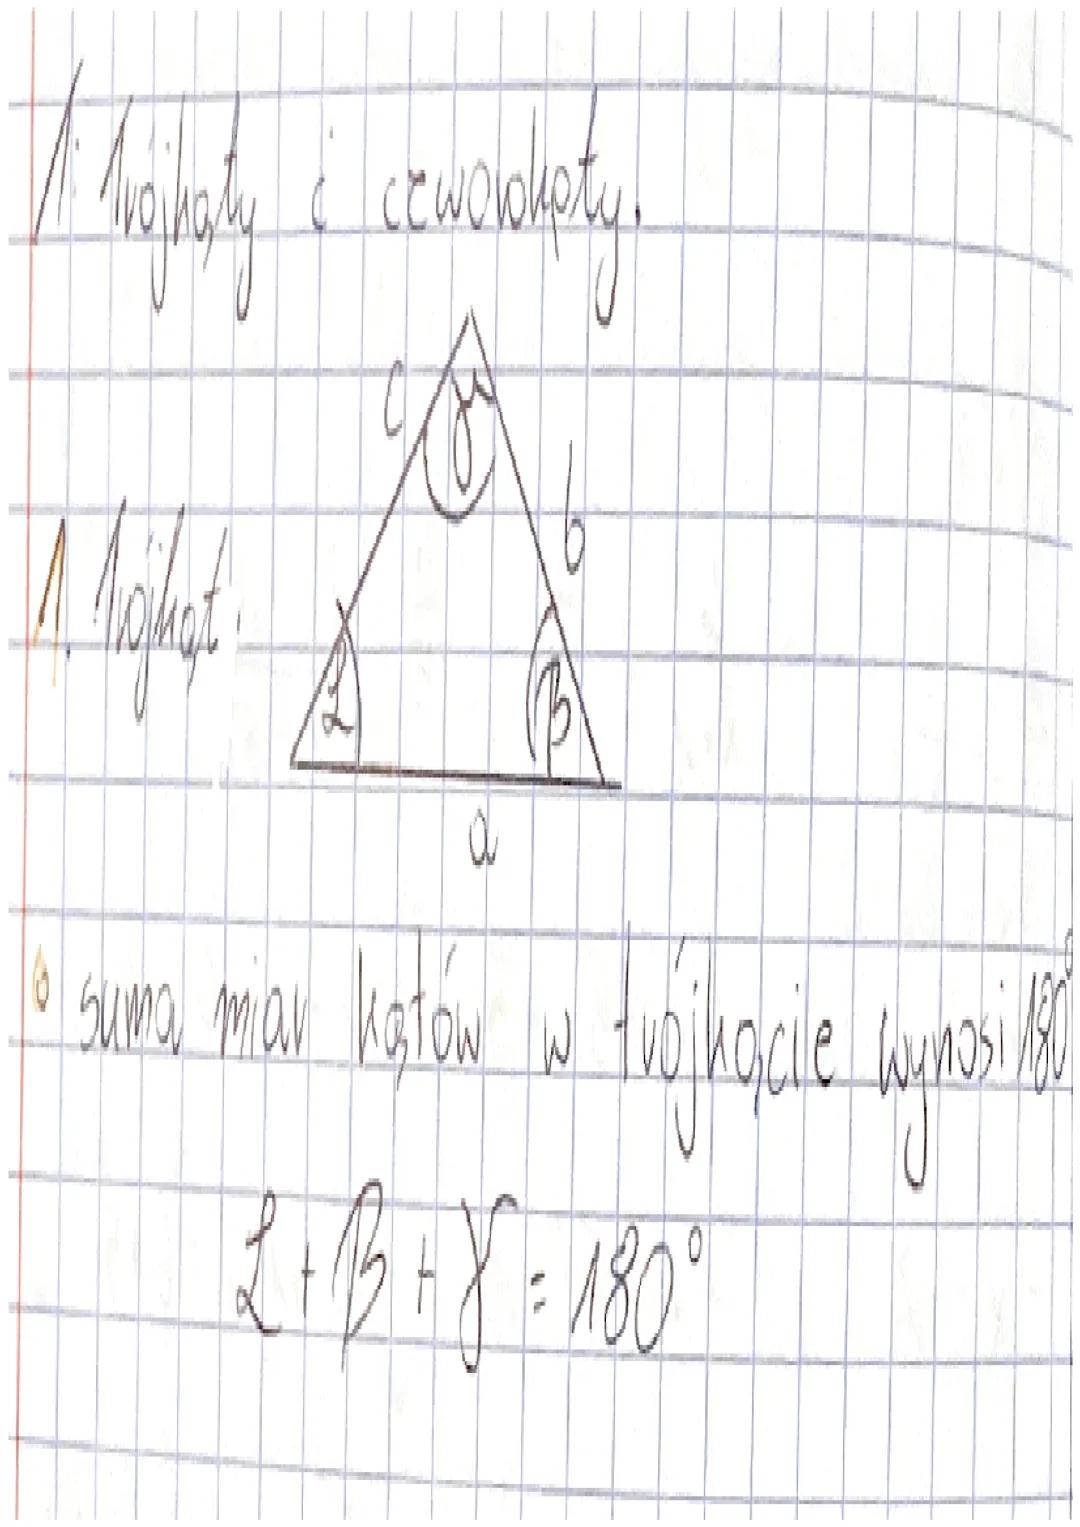 1. Trójkąty i czworokąty.
c
γ
b
1. Trójkąt:
α
β
a
suma miar kątów w trójkącie wynosi 180°
α + β + γ = 180°